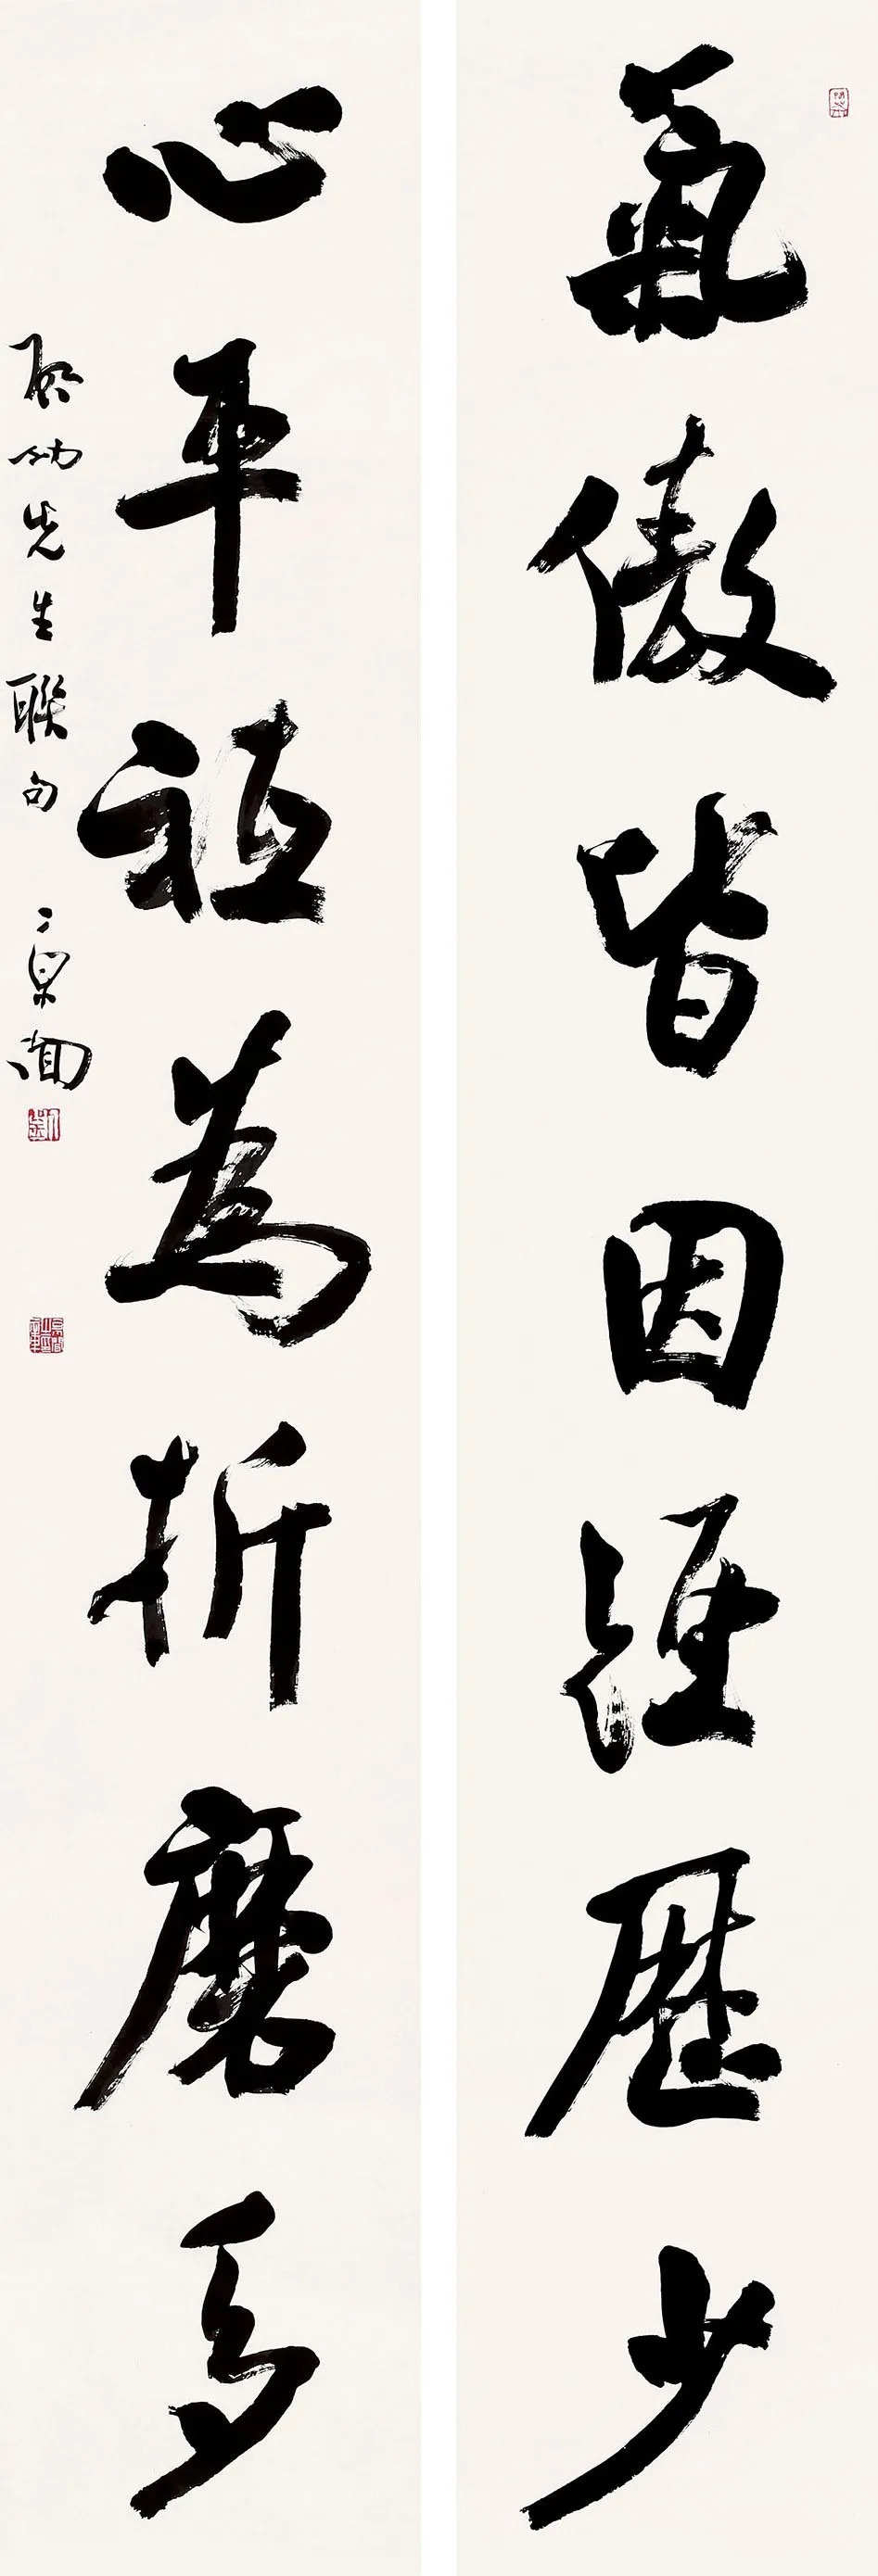 氣傲皆因經歷少
心平祗為折磨多
啟功先生聯句